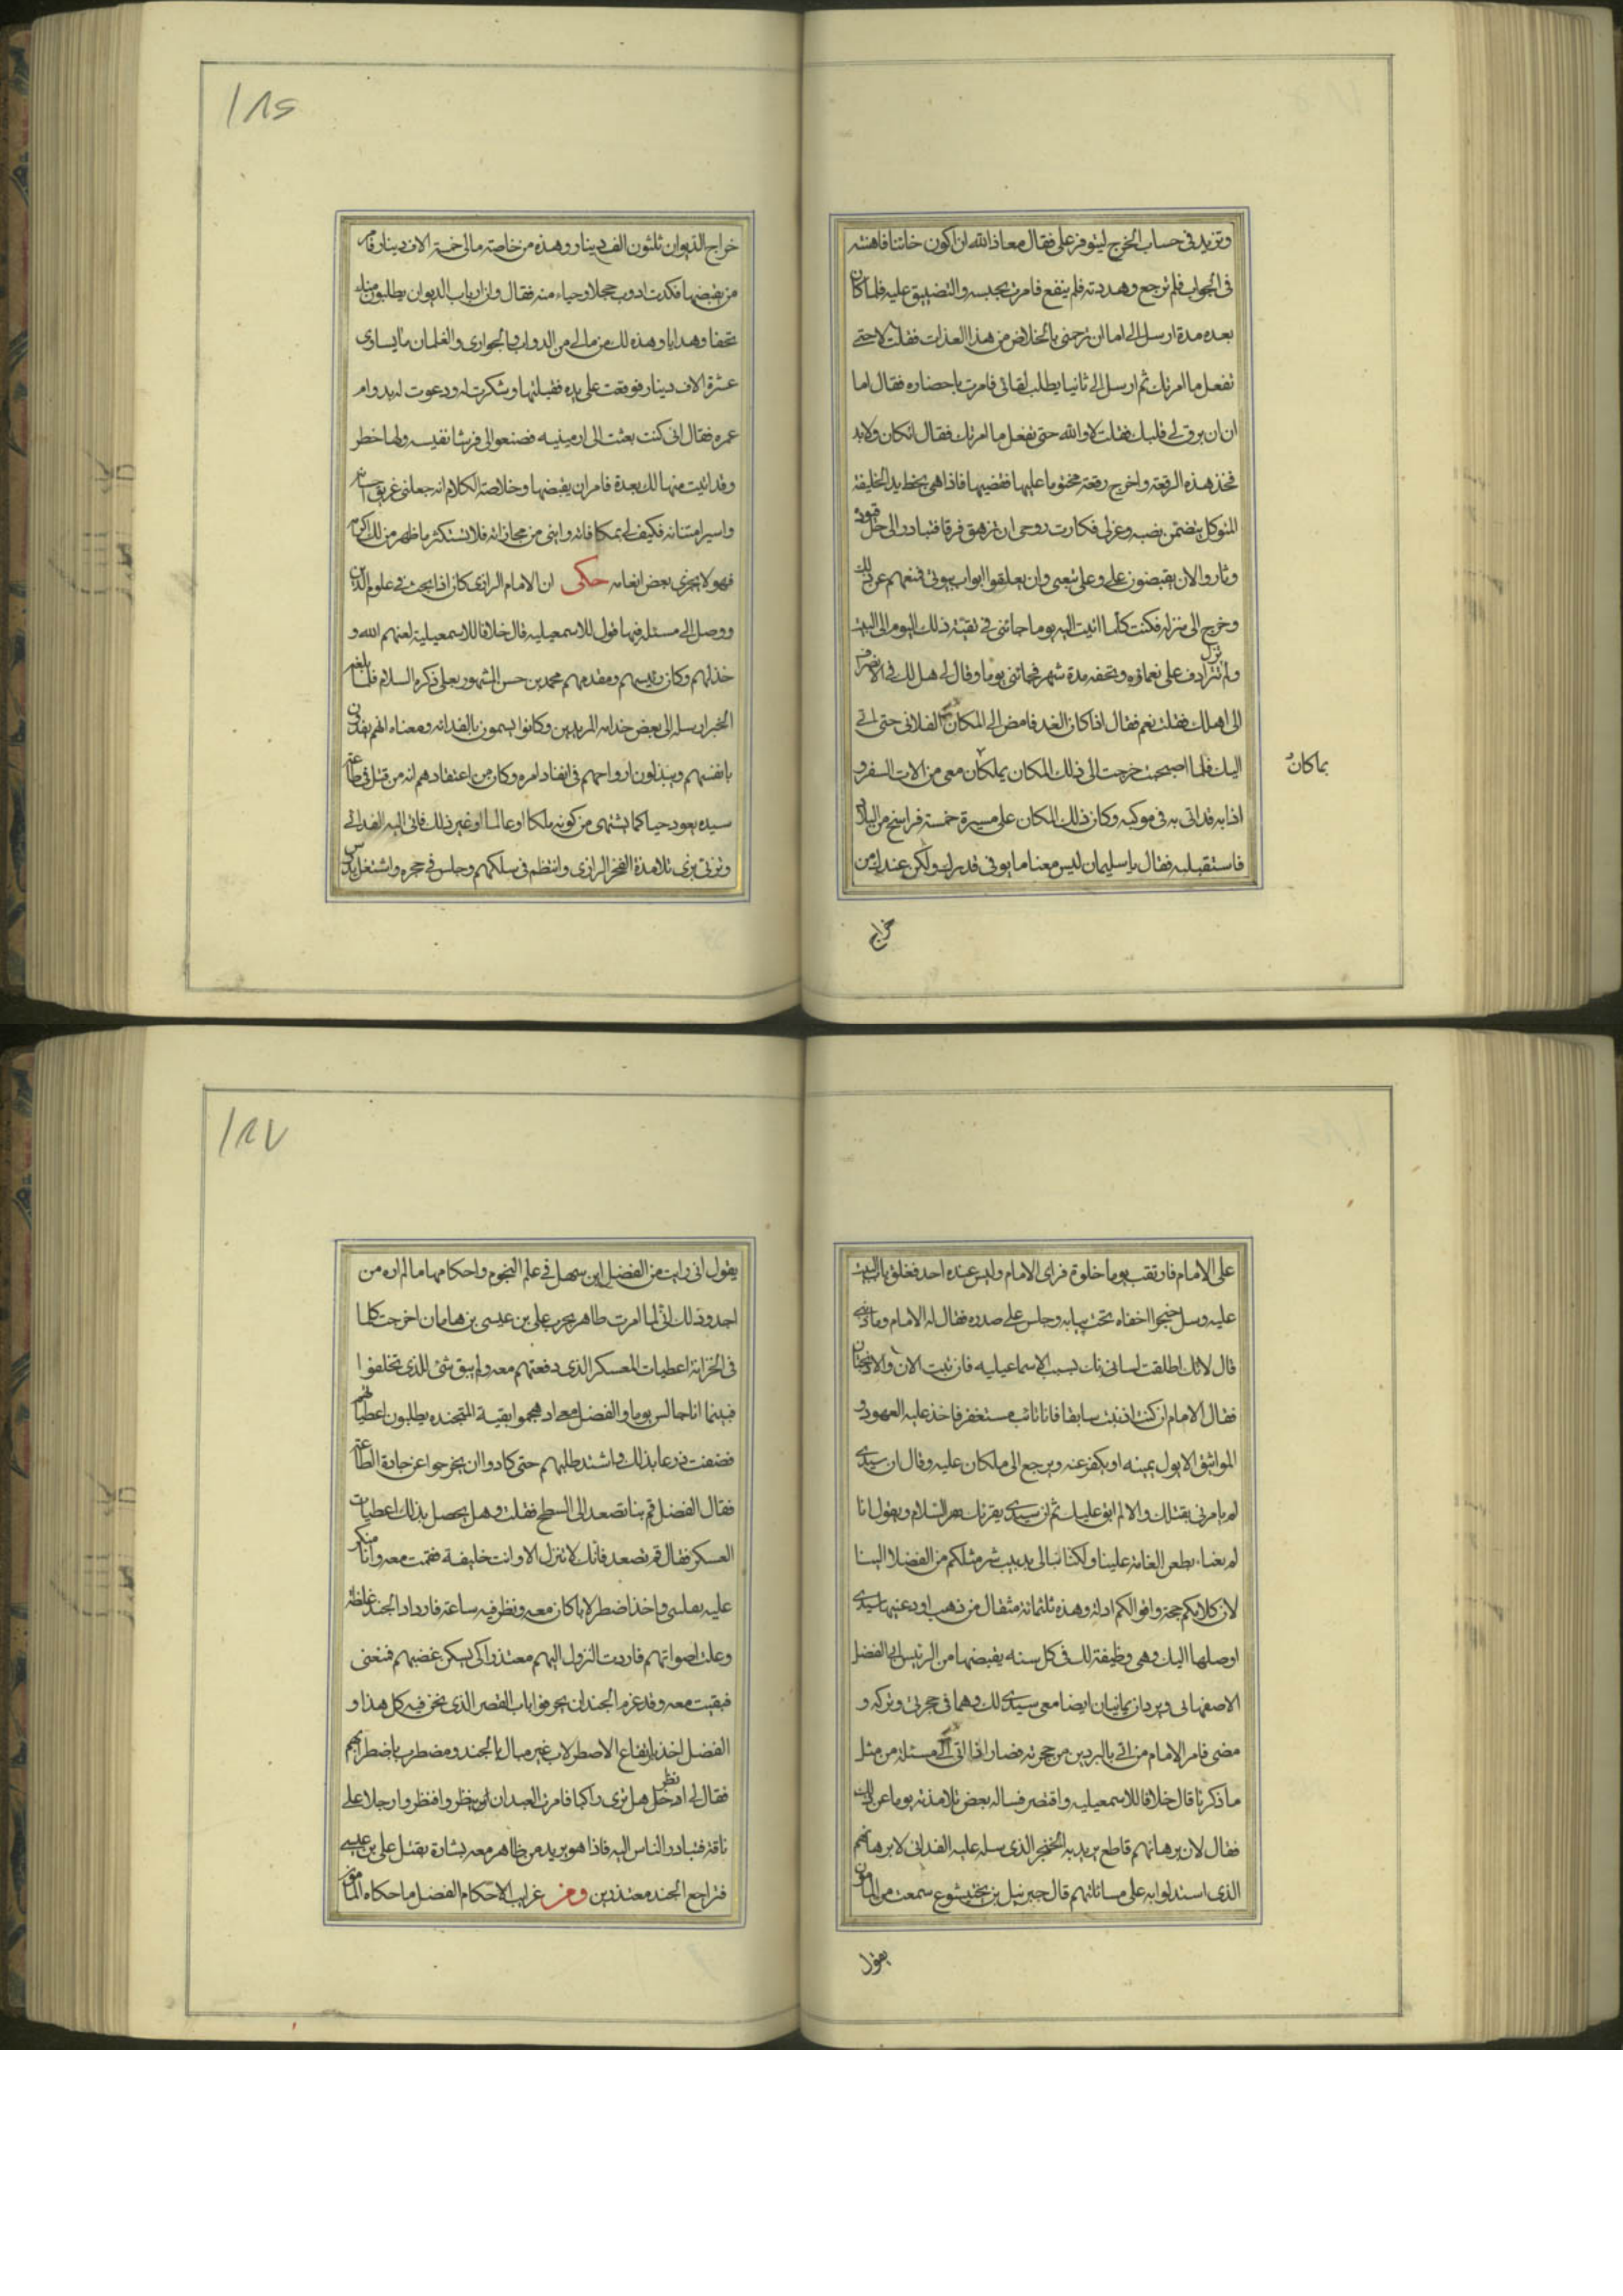 وتزيد في حساب الخرج ليتوفر علي فقال معاذ الله ان اكون خائنا فاهنته
في الجواب فلم ترجع وهددته فلم ينفع فامرت بحبسه والتضييق عليه فلما كان
بعده مدة ارسل الي اما ان ترحمني بالخلاص من هذا العذاب فقلت لا حتى
تفعل ما امرتك ثم ارسل الي ثانيا يطلب لقائي فامرت باحضاره فقال اما
ان ان يرق لي قلبك فقلت لا والله حتى تفعل ما امرتك فقال ان كان ولابد
فخذ هذه الرقعة واخرج رقعة مختوما عليها ففضيها فاذا هي بخط يد الخليفة
المتوكل يتضمن نصبه وعزلي فكادت روحي ان تزهق فرقا فتبادر الى حل قيوده
وثاروا الان يقبضون علي وعلى تبعي وان يغلقوا ابواب بيوتي فمنعهم عن ذلك
وخرج الى منزله فكنت كلما اتيت اليه يوما جائني في بقية ذلك اليوم الى البيت
ولم تزل تترادف علي نعماؤه وتحفه مدة شهر فجائني يوما وقال لي هل لك في الانصراف
الى اهلك فقلت نعم فقال اذا كان الغد فامض الى المكان الفلاني حتى اتي
اليك فلما اصبحت خرجت الى ذلك المكان بملكان معي من الات السفر و
بما كان
اذا به قد اتى به في موكبه وكان ذلك المكان على مسيرة خمسة فراسخ من البلد
فاستقبلبه فقال يا سليمان ليس معنا ما يوفي قدرك ولكن عندك من
خراج
١٨٦
خراج الديوان ثلثون الف دينار وهذه من خاصة مالي خمسة الاف دينار فامر
من يقبضها فكدت اذوب خجلا وحياء منه فقال وان ارباب الديوان يطلبون منك
تحفا وهدايا وهذه لك من مالي من الدواب والجواري والغلمان ما يساوى
عشرة الاف دينار فوقعت على يده فقبلتها وشكرت له ودعوت له بدوام
عمره فقال اني كنت بعثت الى ارمينيه فصنعوا لي فرشا نفيسه ولها خطر
وقد اتيت منها لك بعدة فامر ان يقبضها وخلاصة الكلام انه جعلني غريق احسانه
واسير امتنانه فكيف لي بمكافاته وانى من مجازاته فلا تستكثر ما ظهر من لك اكرام
فهو لا يجزى بعض انعامه حكى ان الامام الرازي كان اذا بحث في علوم الدين
ووصل الى مسئله فيها قول للاسمعيليه قال خلافا للاسمعيلية لعنهم الله و
خذلهم وكان رئيسهم ومقدمهم محمد بن حسن المشهور بعلى ذكره السلام فلما بلغه
الخبر ارسله الى بعض خدامه المريدين وكانوا يسمون بالفدائه ومعناه انهم يفدون
بانفسهم ويبذلون ارواحهم في انفاد امره وكان من اعتقادهم انه من قتل في طاعة
سيده يعود حيا كما يشتهى من كونه ملكا او عالما او غير ذلك فاتى اليه الفدائي
وتزيى بزي تلامذة الفخر الرازي وانتظم في سلكهم وجلس في حجره واشتغل بالدرس
على الامام فارتقب يوما خلوة فراى الامام وليس عنده احد فغلق باب البيت
عليه وسل خنجرا اخفاه تحت ثيابه وجلس على صدره فقال له الامام وما ذنبي
قال لانك اطلقت لسانك بسب الاسماعيليه فان تبت الان والا ذبحتك
فقال الامام ان كنت اذنبت سابقا فانا تائب مستغفر فاخذ عليه العهود و
المواثيق الا يول يمينه او يكفر عنه ويرجع الى ما كان عليه وقال ان سيدي
لم يامرني بقتلك والا لم ابق عليك ثم ان سيدي يقرئك السلام ويقول انا
لم يعنا بطعن العامة علينا ولكنا نبالي بدبيب شر مثلكم من الفضلا الينا
لان كلامكم حجة واقوالكم ادلة وهذه ثلثمائة مثقال من ذهب اودعنيها سيدي
اوصلها اليك وهي وظيفة لك في كل سنه يقبضها من الرئيس ابي الفضل
الاصفهاني وبردان يمانيان ايضا معي سيدي لك وهما في حجرتي وتركه و
مضى فامر الامام من اتى بالبردين من حجرته فصار اذا اتى الى مسئلة من مثل
ما ذكرنا قال خلافا للاسمعيليه واقتصر فساله بعض تلامذته يوما عن ذلك
فقال لان برهانهم قاطع يريد به الخنجر الذي سله عليه الفدائي لا برهانهم
الذي استدلوا به على مسائلهم قال جبرئيل بن بختيشوع سمعت من المامون
يقول
١٨٧
يقول اني رايت من الفضل ابن سهل في علم النجوم واحكامها ما لم اره من
احد وذلك اني لما امرت طاهر بحرب علي بن عيسى بن هامان اخرجت كلما
في الخزانة اعطيات المعسكر الذي دفعتهم معه ولم يبق شئ للذي تخلفوا
فبينما انا جالس يوما والفضل معي اذ هجموا بقية المتجنده يطلبون اعطياتهم
فضقت ذرعا بذلك واشتد طلبهم حتى كادوا ان يخرجوا عن جادة الطاعة
فقال الفضل قم بنا نصعد الى السطح فقلت وهل يحصل بذلك اعطيات
العسكر فقال قم نصعد فانك لا تنزل الا وانت خليفة فقمت معه وانا منكر
عليه بقلبي واخذ اضطرلابا كان معه ونظر فيه ساعة فازداد الجند غلظة
وعلت اصواتهم فاردت النزول اليهم معتذرا كي يسكن غضبهم فمنعني
فبقيت معه وقد عزم الجند ان يحرقوا باب القصر الذي نحن فيه كل هذا و
الفضل اخذ بارتفاع الاصطرلاب غير مبال بالجند ومضطرب باضطرابهم
فقال لي انظر هل ترى راكبا فامرت العبد ان ينظروا فنظروا رجلا على
ناقة فتبادر الناس اليه فاذا هو بريد من طاهر معه بشارة بقتل علي بن عيسى
فتراجع الجند معتذرين ومن غرايب الاحكام الفضل ما حكاه المامون